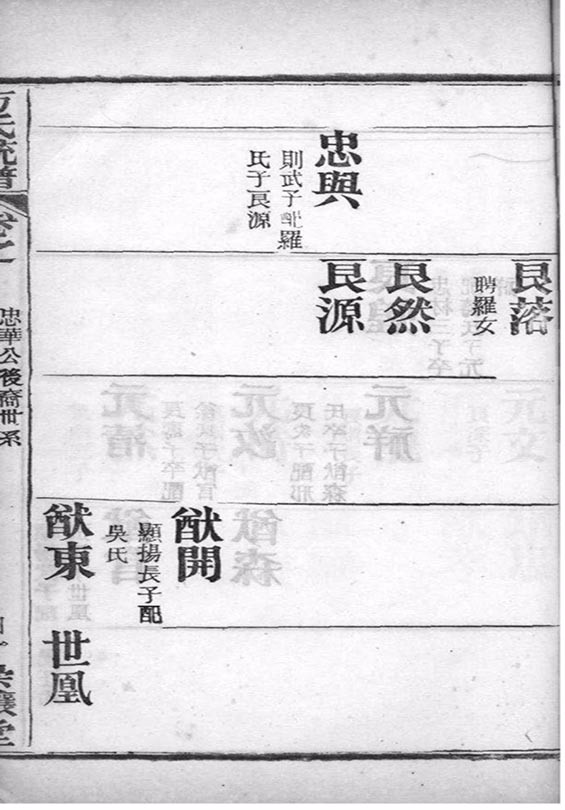 忠與
則武子配羅
氏子良源
良落
聘羅女
良然
良源
猷開
顯揚長子配
吳氏
猷東
世凰
氏統譜
忠華公後裔世系